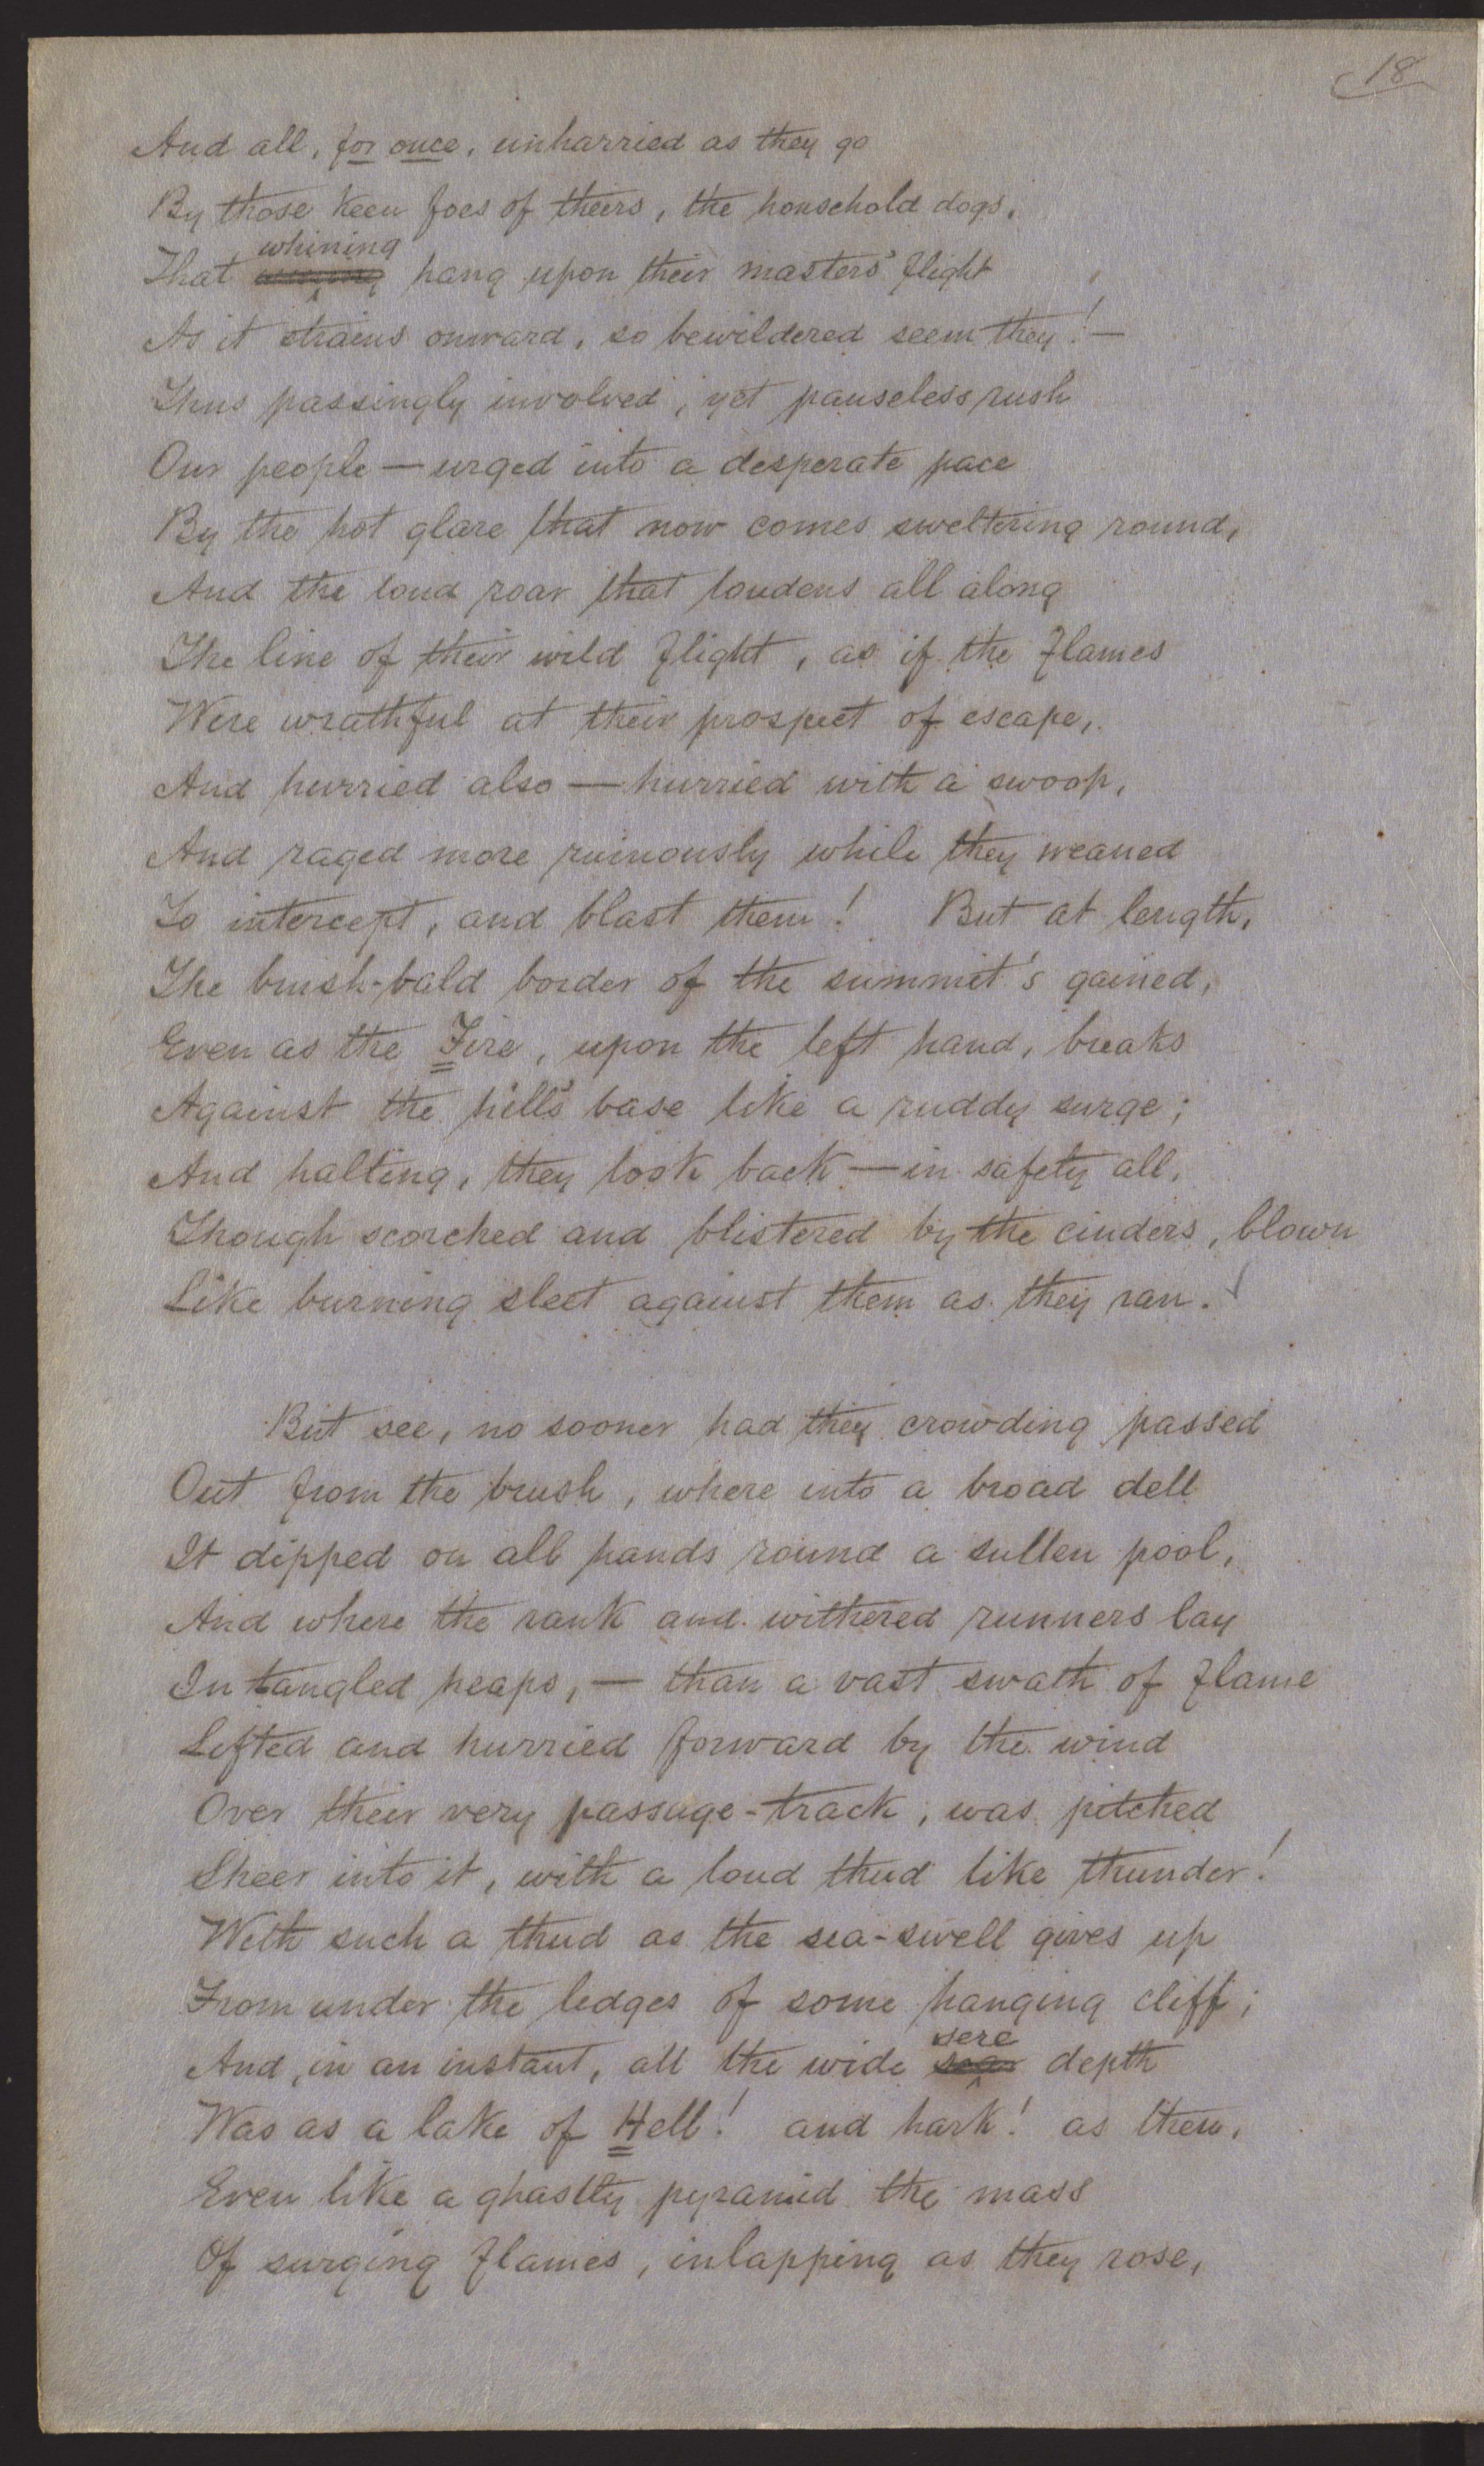 18
And all, for once, unharried as they go
By those keen foes of theirs, the household dogs,
whining
That hang upon their masters' flight
As it strains onward, so bewildered seem they! —
Thus passingly involved, yet pauseless rush
Our people — urged into a desperate pace
By the hot glare that now comes sweltering round,
And the loud roar that loudens all along
The line of their wild flight, as if the Flames
Were wrathful at their prospect of escape,
And hurried also — hurried with a swoop,
And raged more ruinously while they meaned
To intercept, and blast them! But at length,
The brush-bald border of the summit's gained,
Even as the Fire, upon the left hand, breaks
Against the hill's base like a ruddy surge;
And halting, they look back — in safety all,
Though scorched and blistered by the cinders, blown
Like burning sleet against them as they ran.
But see, no sooner had they crowding passed
Out from the brush, where into a broad dell
It dipped on all hands round a sullen pool,
And where the rank and withered runners lay
In tangled heaps, — than a vast swath of flame
Lifted and hurried forward by the wind
Over their very passage-track, was pitched
Sheer into it, with a loud thud like thunder!
With such a thud as the sea-swell gives up
From under the ledges of some hanging cliff;
sere
And, in an instant, all the wide sear depth
Was as a lake of Hell! and hark! as then,
Even like a ghastly pyramid the mass
Of surging flames, inlapping as they rose,